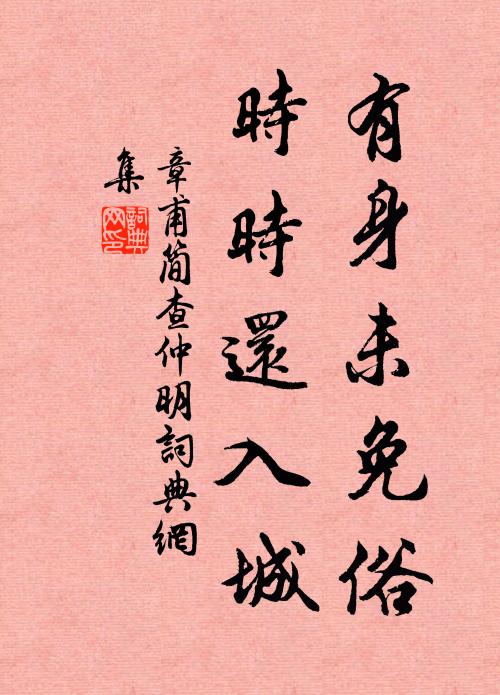 有身未免俗
時時還入城
章甫簡查仲明詞典網
集
詞典
网印